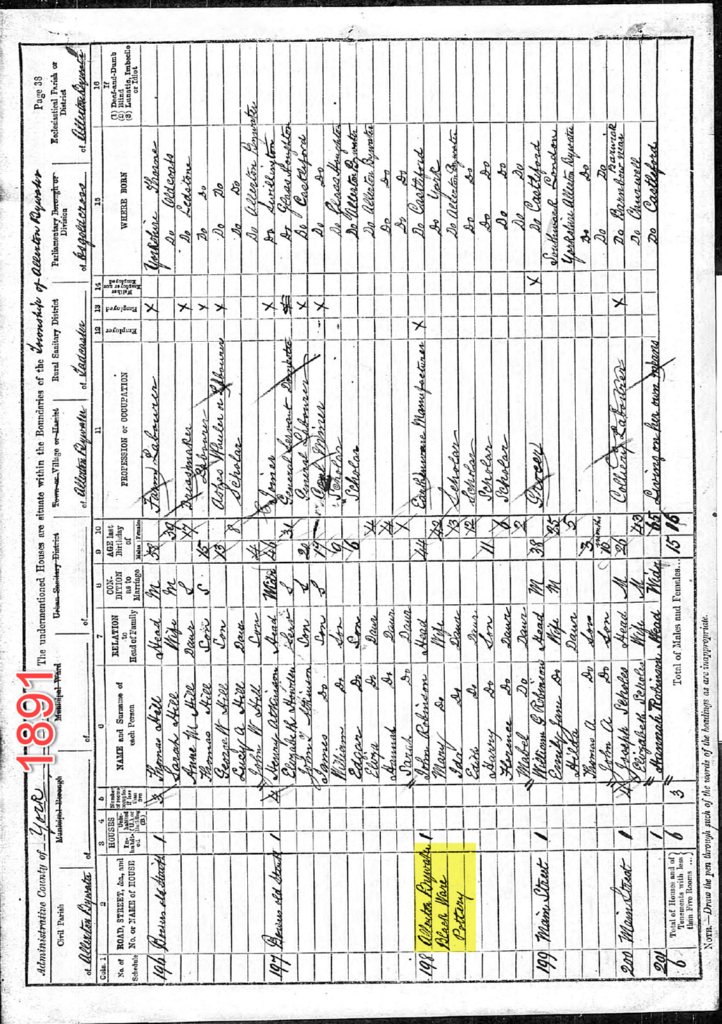 1891
Administrative County of York The undermentioned Houses are situate within the Boundaries of the Township of Allerton Bywater Page 38
Civil Parish
of Allerton Bywater
Municipal Borough
of
Municipal Ward
of
Urban Sanitary District
of
Town or Village or Hamlet
of Allerton Bywater
Rural Sanitary District
of Tadcaster
Parliamentary Borough or Division
of Osgoldcross
Ecclesiastical Parish or District
of Allerton Bywater
Cols. 1 2 3 4 5 6 7 8 9 10 11 12 13 14 15 16
No. of Schedule
ROAD, STREET, &c., and No. or NAME of HOUSE
HOUSES
NAME and Surname of each Person
RELATION to Head of Family
CONDITION as to Marriage
AGE last Birthday of
Males Females
PROFESSION or OCCUPATION
Employer
Employed
Neither Employer nor Employed
WHERE BORN
If (1) Deaf-and-Dumb (2) Blind (3) Lunatic, Imbecile or Idiot
196 1 3 Thomas Hill Head M Farm Labourer X Yorkshire Thorne
Sarah Hill Wife M 39 Do
Anne M Hill Daur S 17 Dressmaker X Do Ledstone
Thomas Hill Son S 15 Labourer X Do Do
George W Hill Son 13 X Do Do
Lucy A Hill Daur 8 Scholar Do Do
John W Hill Son 4 Do Allerton Bywater
197 1 4 Henry Atkinson Head Widr 46 Joiner X Do Swillington
Elizabeth Serv S 31 General Servant Domestic Do Glass Houghton
John Atkinson Son S 20 General Labourer X Do Castleford
James Do Son S X Do Do
William Do Son 9 Scholar Do Glass Houghton
Edgar Do Son 6 Scholar Do Allerton Bywater
Do Daur 4 Do Allerton Bywater
Do Daur Do Do
Sarah Do Daur Do Do
198 Allerton Bywater Black Ware Pottery 1 John Robinson Head 44 Earthenware Manufacturer X Do Castleford
Mary Do Wife 42 Do York
Ida Do Daur 13 Scholar Do Allerton Bywater
Edith Do Daur 12 Scholar Do Do
Harry Do Son 11 Scholar Do Do
Florence Do Daur 6 Scholar Do Do
Mabel Do Daur 2 Do Do
199 Main Street 1 William G Robinson Head M 38 Grocer X Do Castleford
Emily Do Wife M 35 Southwark London
Hilda Do Daur 5 Yorkshire Allerton Bywater
Thomas A Do Son 3 Do Do
John A Do Son 10 months Do Do
200 Main Street 1 4 Joseph Scholes Head M 26 Colliery Labourer X Do Barnbow near Barwick
Elizabeth Scholes Wife M 43 Do Churwell
201 1 Hannah Robinson Head Wid 65 Living on her own means Do Castleford
6 Total of Houses and of Tenements with less than Five Rooms ... 6 3 Total of Males and Females... 15 16
NOTE.—Draw the pen through such of the words of the headings as are inappropriate.